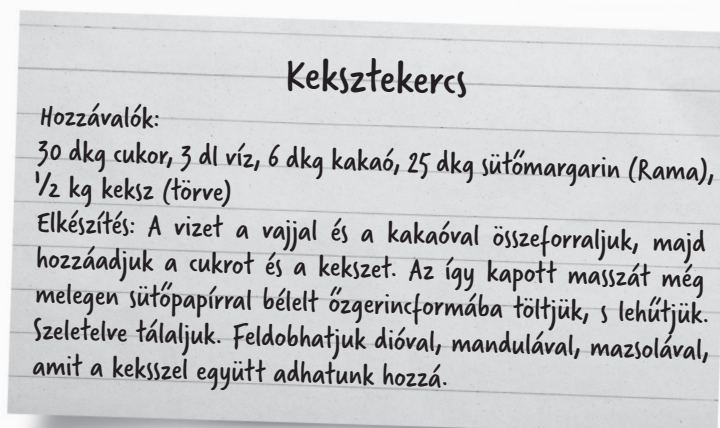 Keksztekercs
Hozzávalók:
30 dkg cukor, 3 dl víz, 6 dkg kakaó, 25 dkg sütőmargarin (Rama),
½ kg keksz (törve)
Elkészítés: A vizet a vajjal és a kakaóval összeforraljuk, majd
hozzáadjuk a cukrot és a kekszet. Az így kapott masszát még
melegen sütőpapírral bélelt őzgerincformába töltjük, s lehűtjük.
Szeletelve tálaljuk. Feldobhatjuk dióval, mandulával, mazsolával,
amit a keksszel együtt adhatunk hozzá.